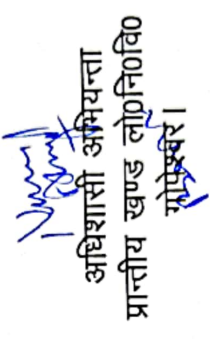 अधिशासी अभियन्ता
प्रान्तीय खण्ड लो०नि०वि०
गोपेश्वर।